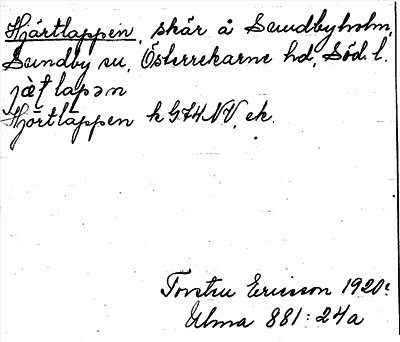 Hjärtlappen, skär å Sundbyholm,
Sundby sn, Österrekarne hd, Söd. l.
Hjörtlappen k G74NV, ek.
Torsten Ericson 1920:
Ulma 881:24a